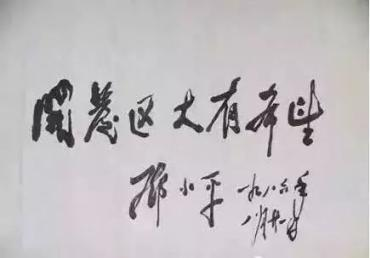 開发区大有希望
邓小平 一九八六年
八月廿一日